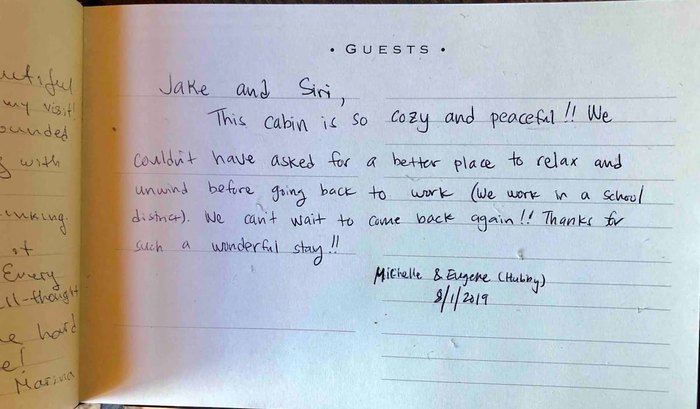 utiful
my visit!
ounded
with
inking.
it
Every
ll-thought
e hard
e!
Marina
• GUESTS •
Jake and Siri,
This cabin is so cozy and peaceful!! We
couldn't have asked for a better place to relax and
unwind before going back to work (We work in a school
district). We can't wait to come back again!! Thanks for
such a wonderful stay!!
Michelle & Eugene (Hubby)
8/1/2019